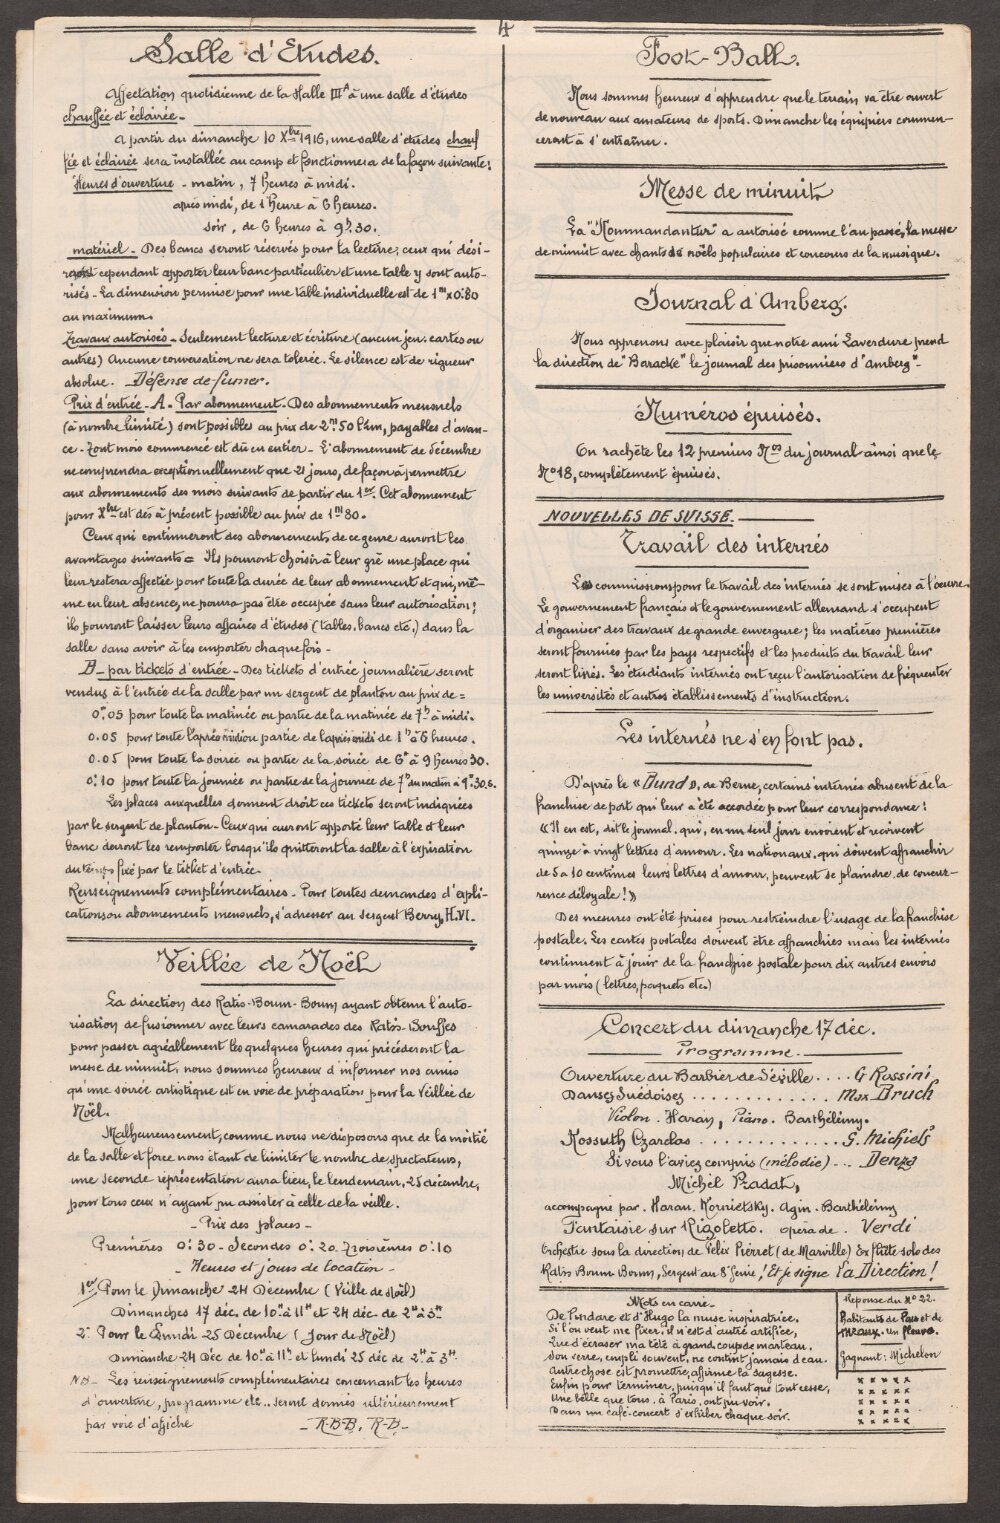 4
Salle d'Etudes.
Affectation quotidienne de la Halle III^A à une salle d'études
chauffée et éclairée.-
A partir du dimanche 10 X^bre 1916, une salle d'études chauf
fée et éclairée sera installée au camp et fonctionnera de la façon suivante:
Heures d'ouverture - matin, 7 heures à midi.
après midi, de 1 heure à 6 heures.
soir, de 6 heures à 9^h 30.
matériel - Des bancs seront réservés pour la lecture, ceux qui dési-
rent cependant apporter leur banc particulier et une table y sont auto-
risés - La dimension permise pour une table individuelle est de 1^m x 0.80
au maximum.
Travaux autorisés - Seulement lecture et écriture (aucun jeu, cartes ou
autres) Aucune conversation ne sera tolerée. Le silence est de rigueur
absolue. Défense de fumer.
Prix d'entrée - A. Par abonnement. Des abonnements mensuels
(à nombre limité) sont possibles au prix de 2^m 50 l'un, payables d'avan-
ce - Tout mois commencé est dû en entier - L'abonnement de décembre
ne comprendra exceptionnellement que 21 jours, de façon à permettre
aux abonnements des mois suivants de partir du 1^er. Cet abonnement
pour X^bre est dès à présent possible au prix de 1^m 80.
Ceux qui continueront des abonnements de ce genre auront les
avantages suivants = Ils pourront choisir à leur gré une place qui
leur restera affectée pour toute la durée de leur abonnement et qui, mê-
me en leur absence, ne pourra pas être occupée sans leur autorisation;
ils pourront laisser leurs affaires d'études (tables, bancs etc.) dans la
salle sans avoir à les emporter chaque fois -
B - par tickets d'entrée - Des tickets d'entrée journalière seront
vendus à l'entrée de la salle par un sergent de planton au prix de =
0.05 pour toute la matinée ou partie de la matinée de 7^h à midi.
0.05 pour toute l'après midi ou partie de l'après midi de 1^h à 6 heures.
0.05 pour toute la soirée ou partie de la soirée de 6^h à 9 heures 30.
0.10 pour toute la journée ou partie de la journée de 7^h du matin à 9^h 30 s.
Les places auxquelles donnent droit ces tickets seront indiquées
par le sergent de planton - Ceux qui auront apporté leur table et leur
banc devront les remporter lorsqu'ils quitteront la salle à l'expiration
du temps fixé par le ticket d'entrée.
Renseignements complémentaires - Pour toutes demandes d'expli-
cations ou abonnements mensuels, s'adresser au sergent Berry, H.VI.
Veillée de Noël
La direction des Ratis-Boum-Boum ayant obtenu l'auto-
risation de fusionner avec leurs camarades des Ratis-Bouffes
pour passer agréablement les quelques heures qui précèderont la
messe de minuit, nous sommes heureux d'informer nos amis
qu'une soirée artistique est en voie de préparation pour la Veillée de
Noël.
Malheureusement, comme nous ne disposons que de la moitié
de la salle et force nous étant de limiter le nombre de spectateurs,
une seconde représentation aura lieu, le lendemain, 25 décembre,
pour tous ceux n'ayant pu assister à celle de la veille.
- Prix des places -
Premières 0.30 - Secondes 0.20. Troisièmes 0.10
- Heures et jours de location -
1^er Pour le Dimanche 24 Décembre (Veille de Noël)
Dimanches 17 déc. de 10^h à 11^h et 24 déc. de 2^h à 3^h
2^e Pour le Lundi 25 Décembre (Jour de Noël)
Dimanche 24 Déc de 10^h à 11^h et lundi 25 déc de 2^h à 3^h.
NB - Les renseignements complémentaires concernant les heures
d'ouverture, programme etc... seront donnés ultérieurement
par voie d'affiche - R-B-B, R-B-
Foot-Ball.
Nous sommes heureux d'apprendre que le terrain va être ouvert
de nouveau aux amateurs de sports. Dimanche les équipiers commen-
ceront à s'entraîner.
Messe de minuit
La "Kommandantur" a autorisé comme l'an passé, la messe
de minuit avec chants de noëls populaires et concours de la musique.
Journal d'Amberg.
Nous apprenons avec plaisir que notre ami Laverdure prend
la direction de "Baracke" le journal des prisonniers d'Amberg"-
Numéros épuisés.
On rachète les 12 premiers N^os du journal ainsi que le
N° 18, complètement épuisés.
NOUVELLES DE SUISSE.
Travail des internés
Les commissions pour le travail des internés se sont mises à l'œuvre.
Le gouvernement français et le gouvernement allemand s'occupent
d'organiser des travaux de grande envergure; les matières premières
seront fournies par les pays respectifs et les produits du travail leur
seront livrés. Les étudiants internés ont reçu l'autorisation de fréquenter
les universités et autres établissements d'instruction.
Les internés ne s'en font pas.
D'après le « Bund », de Berne, certains internés abusent de la
franchise de port qui leur a été accordée pour leur correspondance:
« Il en est, dit le journal, qui, en un seul jour envoient et reçoivent
quinze à vingt lettres d'amour. Les nationaux, qui doivent affranchir
de 5 à 10 centimes leurs lettres d'amour, peuvent se plaindre, de concur-
rence déloyale! »
Des mesures ont été prises pour restreindre l'usage de la franchise
postale. Les cartes postales doivent être affranchies mais les internés
continuent à jouir de la franchise postale pour dix autres envois
par mois (lettres, paquets etc.)
Concert du dimanche 17 déc.
Programme.
Ouverture du Barbier de Séville .... G Rossini
Danses Suédoises ............ Max Bruch
Violon. Haran, Piano. Barthélémy.
Kossuth Czardas ............ G. Michiels
Si vous l'aviez compris (mélodie) ... Denza
Michel Pradat,
accompagné par. Haran. Kornietsky. Agin. Barthélémy
Fantaisie sur Rigoletto. opéra de. Verdi
Orchestre sous la direction, de Félix Pierret (de Marville) Ex flûte solo des
Ratis Boum Boum, Sergent au 8^e Génie! Et je signe La Direction!
Mots en carré.
De Pindare et d'Hugo la muse inspiratrice.
Si l'on veut me fixer, il n'est d'autre artifice,
Que d'écraser ma tête à grand coups de marteau.
Son verre, empli souvent, ne contint jamais d'eau.
Autre chose est promettre, affirme la sagesse.
Enfin pour terminer, puisqu'il faut que tout cesse,
Une belle que tous, à Paris, ont pu voir.
Dans un café-concert s'exhiber chaque soir.
Réponse du N° 22.
Habitants de Laus et de
Meaux. un fleuve.
Gagnant: Michelon
x x x x x
x x x x x
x x x x x
x x x x x
x x x x x